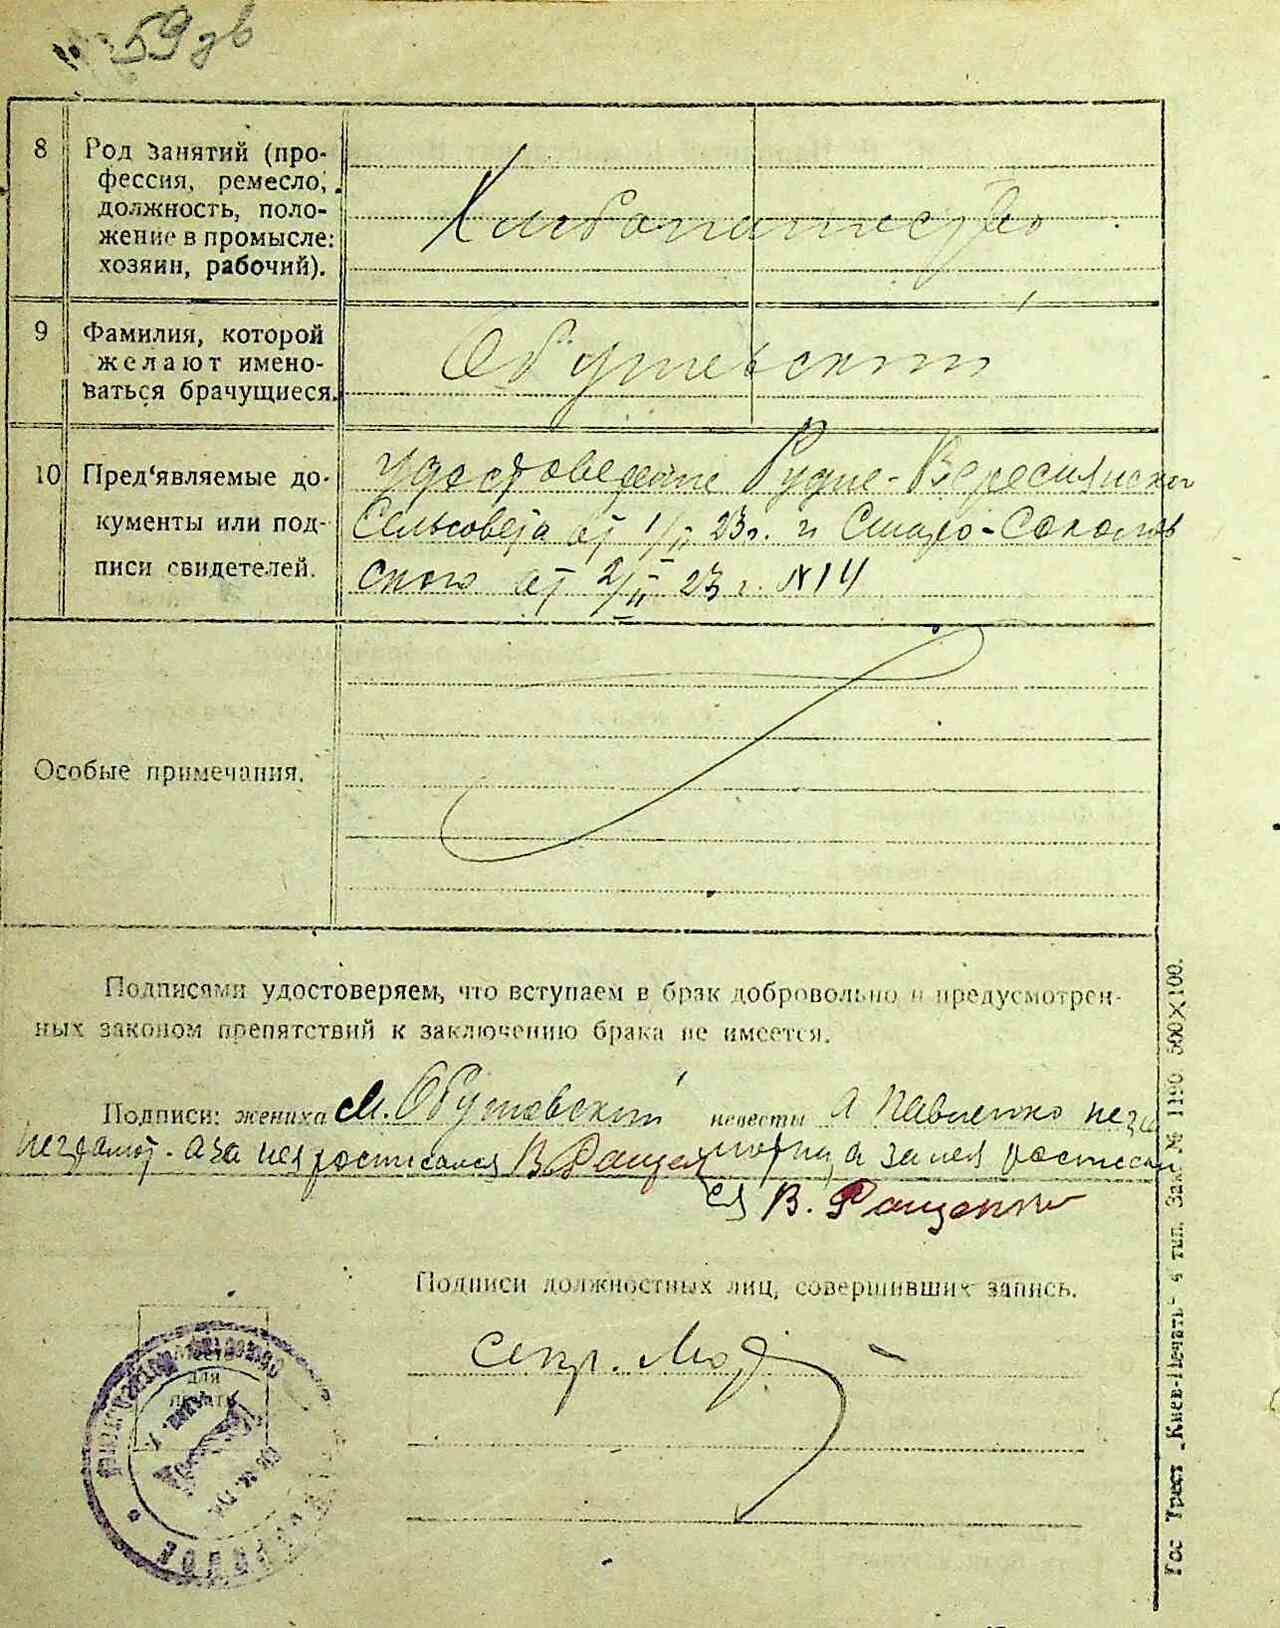 59 дв
8 Род занятий (про-
фессия, ремесло,
должность, поло-
жение в промысле:
хозяин, рабочий).
Хлибопашество
9 Фамилия, которой
желают имено-
ваться брачущиеся.
Обушевский
10 Пред'являемые до-
кументы или под-
писи свидетелей.
удостоверение Рудне-Вересн
Сельсовета от 1/II 23 г. и Старо-Соколов
ского от 2/II 23 г. №14
Особые примечания.
Подписями удостоверяем, что вступаем в брак добровольно и предусмотрен-
ных законом препятствий к заключению брака не имеется.
Подписи: жениха М. Обушовский невесты А Павленко негра
неграмот. а за нея росписался В. Ращенко мотна, а за нея росписал
ся В. Ращенко
Подписи должностных лиц, совершивших запись.
секр.
Место
для
печати
Гос Трест „Киев-Печать“ 4 тип. Зак. № 1190 500×100.